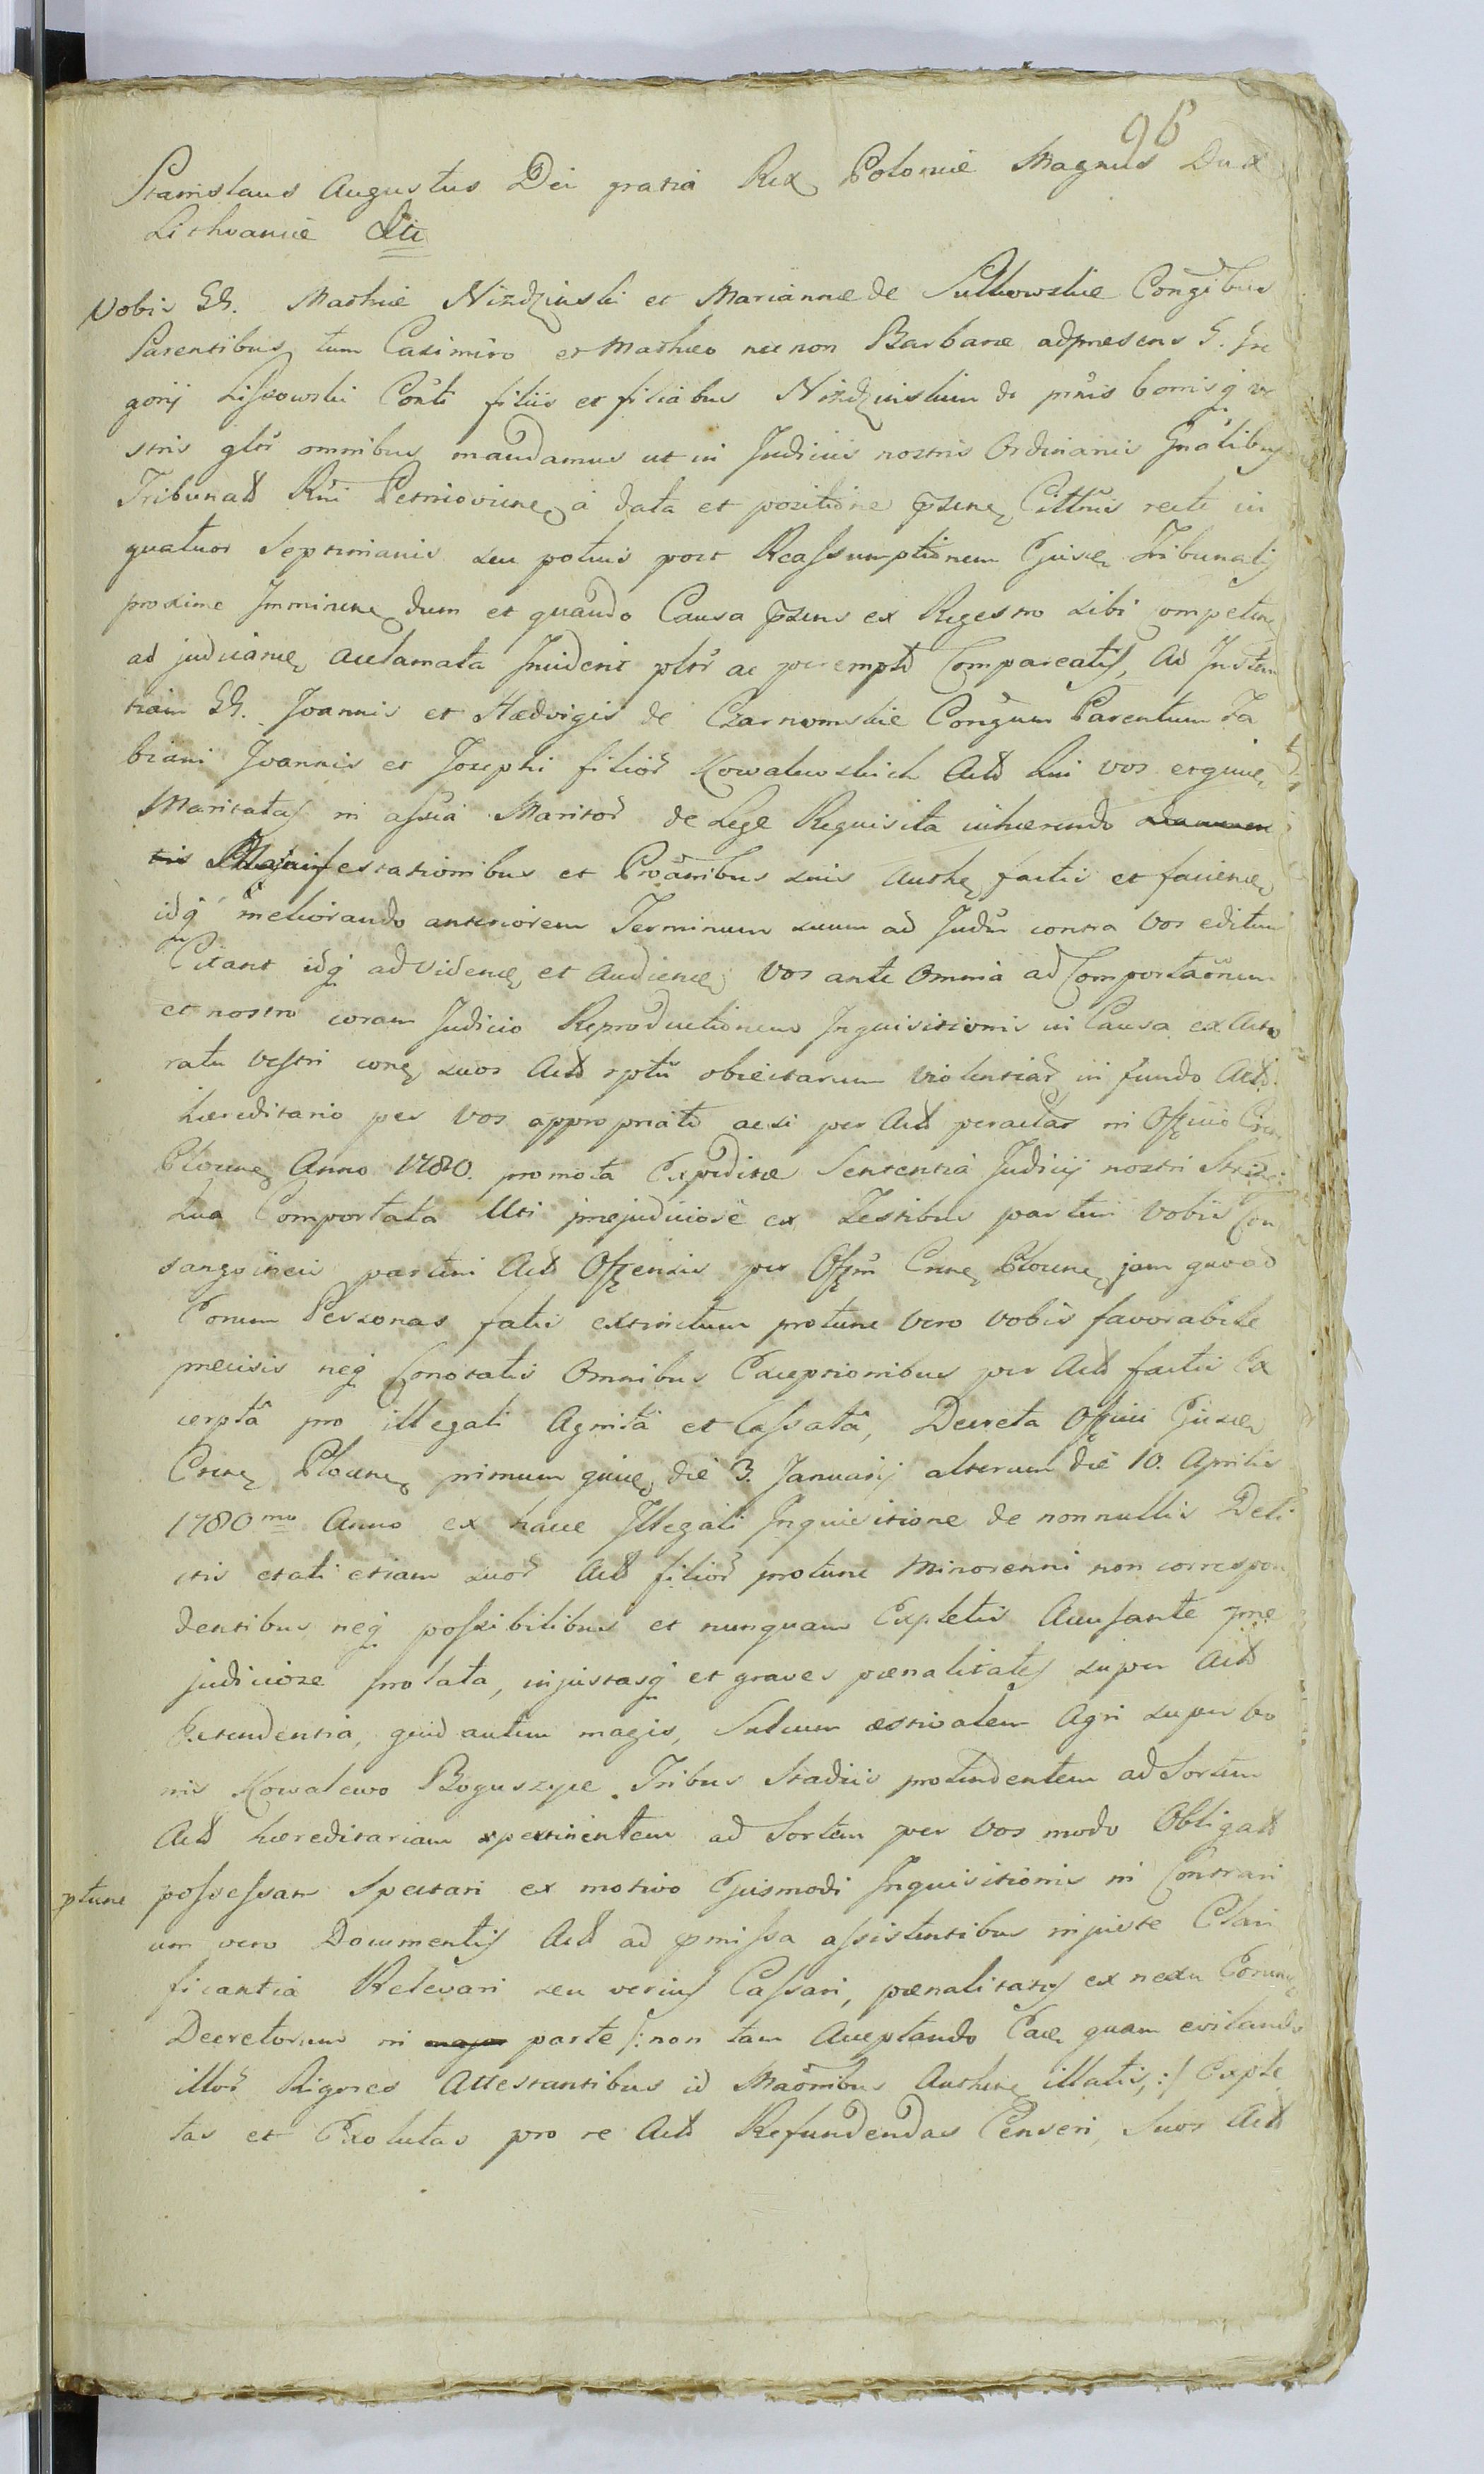 96
Stanislaus Augustus Dei gratia Rex Poloniæ Magnus Dux
Lithvaniæ Etc
Vobis GG. Mathiæ Nizdzinski et Mariannæ de Sulkowskie Congibus
Parentibus tum Casimiro et Mathæo nec non Barbaræ adpræsens G. Gre
gorij Liszowski Conti filiis et filiabus Nizdzinskim de prnis bonisq ve
stris glbr omnibus mandamus ut in Judiciis nostris Ordinariis Gnalibus
Tribunalis Rni Petricovien a data et positione pzene Cittnis recte in
quatuor Septimanis seu potius post Reassumptionem Ejusce Tribunalis
proxime Imminen dum et quando Causa pzens ex Regestro sibi Competen
ad judicanu acclamata Inciderit pltr ac perempte Compareatis, Ad Instan
tiam GG. Joannis et Hædvigis de Czarnomskie Congum Parentum Fa
biani Joannis et Josephi filior Kowalewskich Actt hui vos ergine
Maritatas in assia Maritor de Lege Requisita inhærendo
Manifestationibus et Proanibus suis Authe factis et faciene
idq meliorando anteriorem Terminum suum ad Judm contra Vos editum
Citant idq ad Videne et Audiene Vos ante Omnia ad Comportaonem
et nostro coram Judicio Reproductionem Inquisitionis in Causa ex Acto
ratu Vestri cone suos Actt rptu obiectarum violentiar in fundo Actt
hæreditario per Vos appropriate acsi per Actt peractar in Officio Cren
Plocene Anno 1780. promota Expeditæ Sententia Judicij nostri
Sua Comportata Uti præjudiciose ex Testibus partim Vobis Con
sangvineis partim Actt Offensis per Offm Crene Plocene jam quoad
Eorum Personas fatis extinctum protunc Vero Vobis favorabile
præcisis neq Connotatis Omnibus Exceptionibus per Actt factis Ex
cerptâ pro illegali Agnitâ et Cassatâ, Decreta Officii Ejusce
Crene Plocene primum quive die 3. Januarij alterum die 10. Aprilis
1780mo Anno ex hacce Illegali Inquisitione de nonnullis Deli
ctis etati etiam suor Actt filior protunc Minorenni non correspon
dentibus neq possibilibus et nunquam Expletis Accusante præ
judiciose prolata, injustasq et graves pænalitates super Actt
Extendentia, quid autem magis, Sulcum æstivalem Agri super bo
nis Kowalewo Boguszyce Tribus Stadiis protendentem ad Sortem
Actt hæreditariam pertinentem ad Sortem per Vos modo Obligatt
ptunc possessam Spectari ex motivo Ejusmodi Inquisitionis in Contrari
um vero Documentis Actt ad pmissa assistentibus injuste Clari
ficantia Relevari seu verius Cassari, pænalitates ex nexu Eorune
Decretorum in major parte /: non tam Acceptando Eace quam evitando
illor Rigores Attestantibus id Maonibus Authene illatis, :/ Exple
tas et Exolutas pro re Actt Refundendas Censeri, Suos Actt